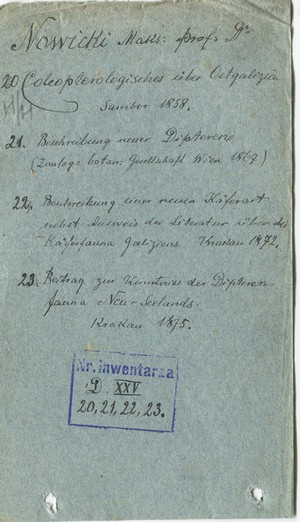 Nowicki Maks: prof: Dr
20 Coleopterologisches über Ostgalizien
Sambor 1858.
21. Beschreibung neuer Dipteren
(Zoolog: botan: Gesellschaft Wien 1867)
22. Beschreibung einer neuen Käferart
nebst Ausweis der Literatur über die
Käferfauna Galiziens. Krakau 1872.
23. Beitrag zur Kenntniss der Dipteren-
fauna Neu-Seelands.
Krakau 1875.
Nr. inwentarza
D. XXV
20, 21, 22, 23.